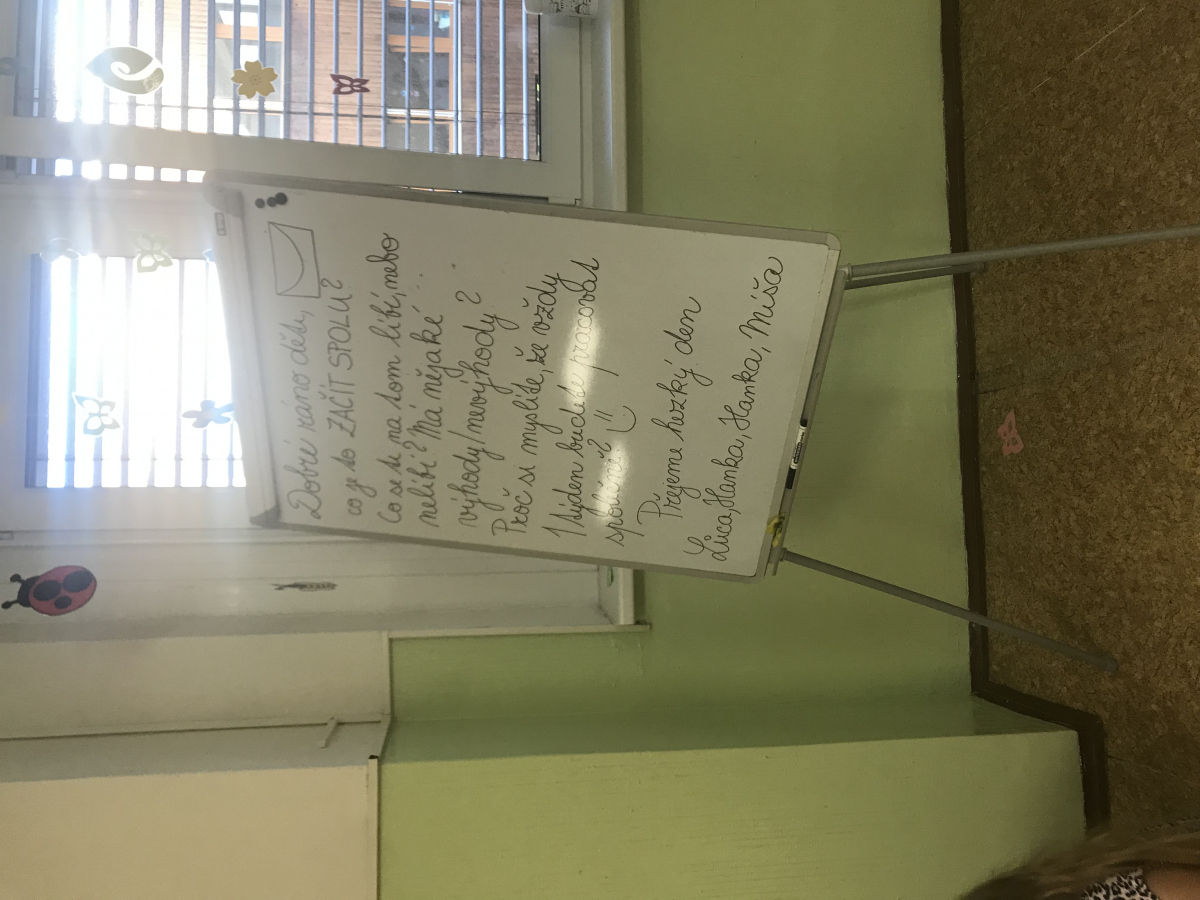 Dobré ráno děti,
co je to ZAČÍT SPOLU?
Co se ti na tom líbí, nebo
nelíbí? Má nějaké
výhody/nevýhody?
Proč si myslíte, že vždy
1 týden budete pracovat
společně? :)
Přejeme hezký den
Lůca, Hanka, Hanka, Míša